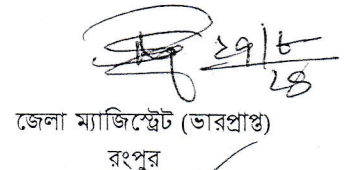 ২৭/৮
২৪
জেলা ম্যাজিস্ট্রেট (ভারপ্রাপ্ত)
রংপুর